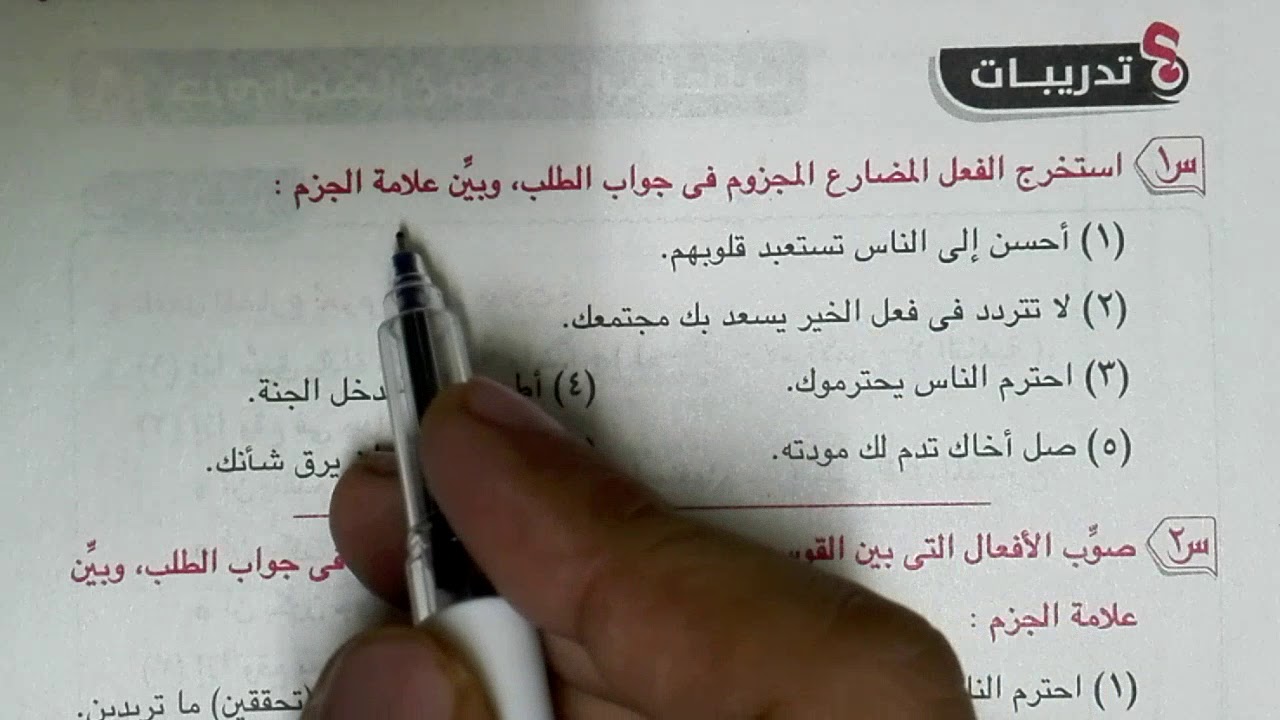 تدريبات
س١ استخرج الفعل المضارع المجزوم فى جواب الطلب، وبيِّن علامة الجزم :
(١) أحسن إلى الناس تستعبد قلوبهم.
(٢) لا تتردد فى فعل الخير يسعد بك مجتمعك.
(٣) احترم الناس يحترموك. (٤) الجنة.
(٥) صل أخاك تدم لك مودته. يرق شأنك.
س٢ صوِّب الأفعال التى بين فى جواب الطلب، وبيِّن
علامة الجزم :
(١) احترم (تحققين) ما تريدين.